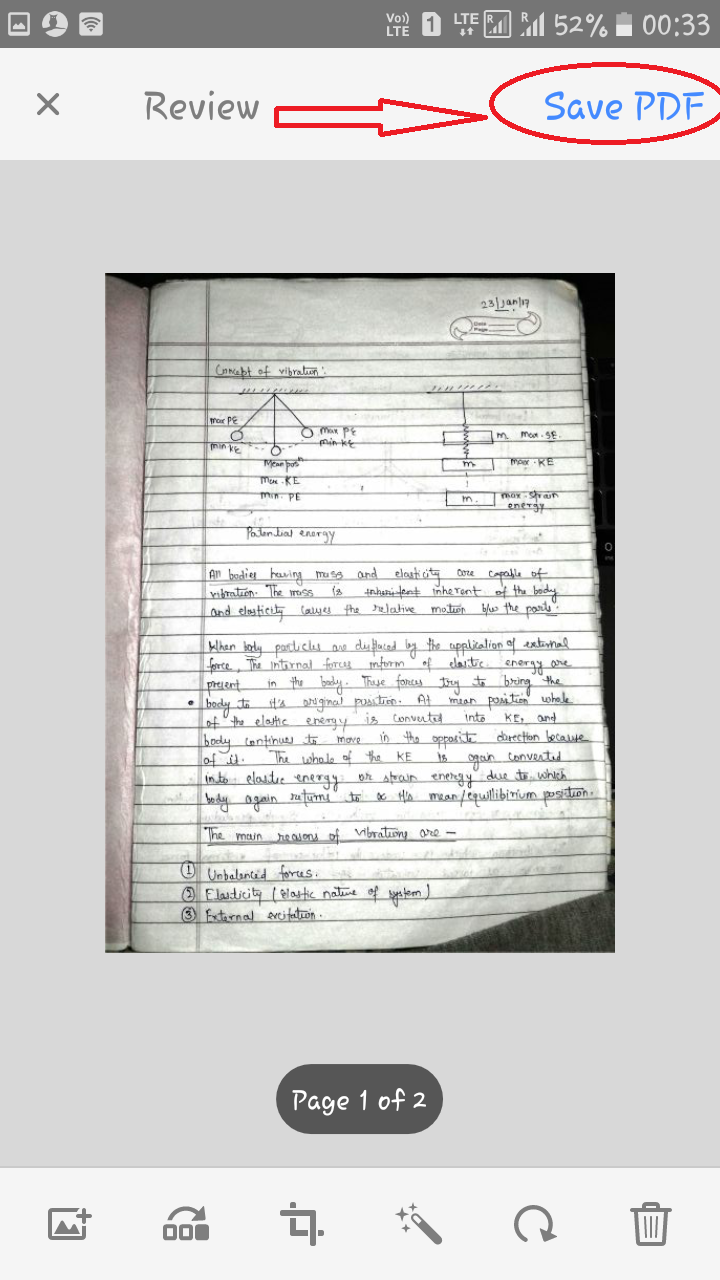 Vo) LTE 1 LTE R R 52% 00:33
Review
Save PDF
23/Jan/17
Date
Page
Concept of vibration:
max PE
min KE
max PE
min KE
Mean posⁿ
Max. KE
Min. PE
m. max. SE.
m. max. KE
m. max. strain
energy
Potential energy
All bodies having mass and elasticity are capable of
vibration. The mass is inherent of the body
and elasticity causes the relative motion b/w the parts.
When body particles are displaced by the application of external
force, The internal forces inform of elastic energy are
present in the body. These forces try to bring the
body to it's original position. At mean position whole
of the elastic energy is converted into KE, and
body continues to move in the opposite direction because
of it. The whole of the KE is again converted
into elastic energy or strain energy due to which
body again returns to it's mean/equillibirium position.
The main reasons of vibrations are —
① Unbalenced forces.
② Elasticity (elastic nature of system)
③ External excitation.
Page 1 of 2